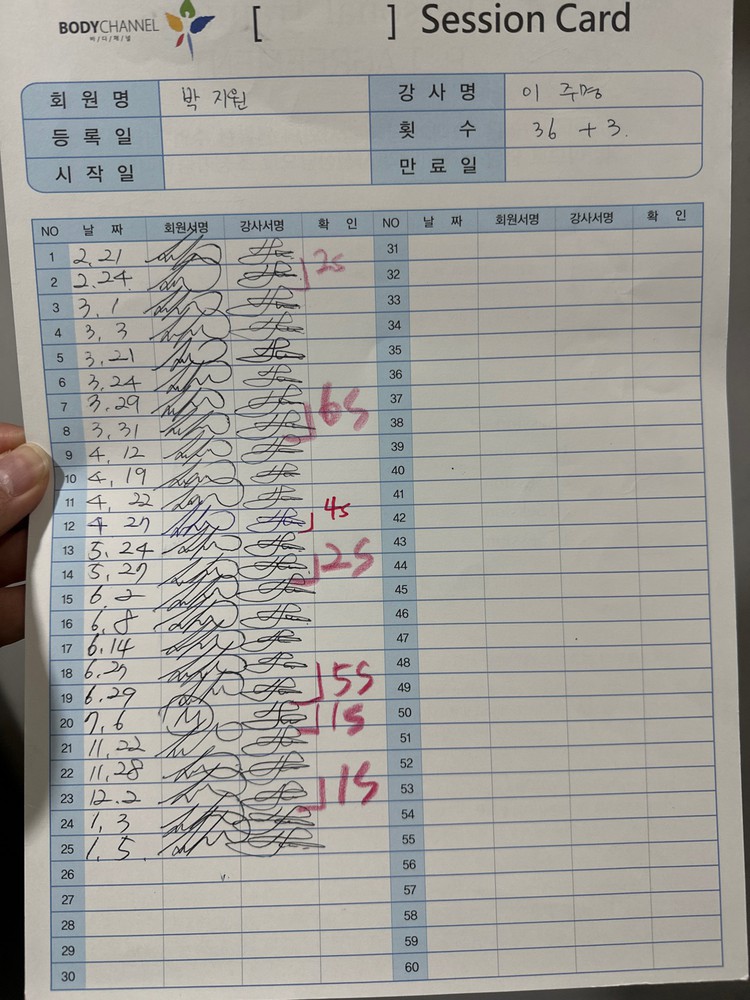 BODYCHANNEL
바/디/채/널
[ ] Session Card
회원명 박지원 강사명 이주명
등록일 횟수 36 + 3.
시작일 만료일
NO 날짜 회원서명 강사서명 확인 NO 날짜 회원서명 강사서명 확인
1 2.21 31
2 2.24 2s 32
3 3.1 33
4 3.3 34
5 3.21 35
6 3.24 36
7 3.29 37
8 3.31 6s 38
9 4.12 39
10 4.19 40
11 4.22 41
12 4 27 4s 42
13 5.24 43
14 5.27 2s 44
15 6.2 45
16 6.8 46
17 6.14 47
18 6.27 48
19 6.29 5s 49
20 7.6 1s 50
21 11.22 51
22 11.28 52
23 12.2 1s 53
24 1.3 54
25 1.5 55
26 56
27 57
28 58
29 59
30 60